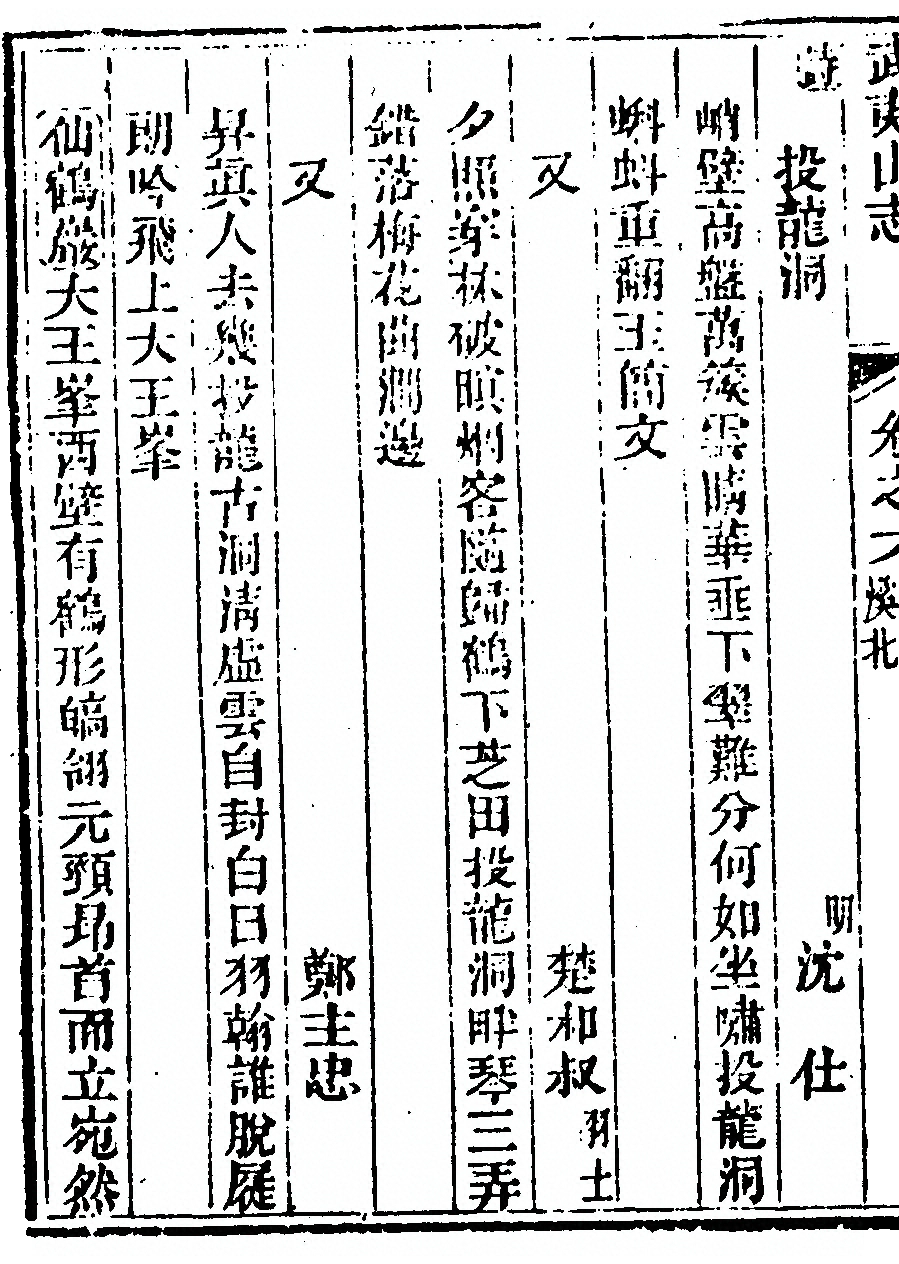 武夷山志 卷之 溪北
詩 投龍洞 明 沈仕
峭壁高盤萬簇雲晴華垂下翠難分何如坐嘯投龍洞
蝌蚪重翻玉簡文
又 楚和叔 羽士
夕照穿林破暝烟客隨歸鶴下芝田投龍洞畔琴三弄
錯落梅花曲澗邊
又 鄭主忠
昇真人去幾投龍古洞清虛雲自封白日羽翰誰脫屣
朗吟飛上大王峯
仙鶴巖大王峯西壁有鶴形皜翎元頸昂首而立宛然